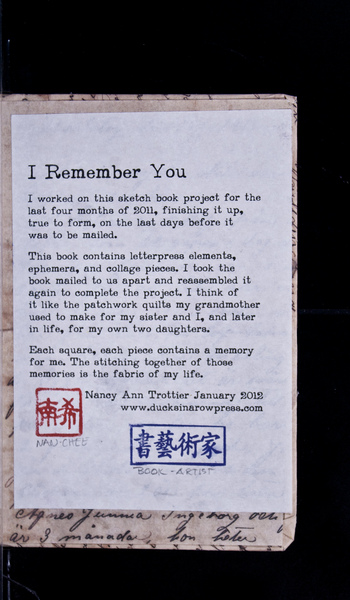 I Remember You
I worked on this sketch book project for the
last four months of 2011, finishing it up,
true to form, on the last days before it
was to be mailed.
This book contains letterpress elements,
ephemera, and collage pieces. I took the
book mailed to us apart and reassembled it
again to complete the project. I think of
it like the patchwork quilts my grandmother
used to make for my sister and I, and later
in life, for my own two daughters.
Each square, each piece contains a memory
for me. The stitching together of those
memories is the fabric of my life.
Nancy Ann Trottier January 2012
www.ducksinarowpress.com
南希
NAN-CHEE
書藝術家
BOOK - ARTIST
Agnes Ingeborg och
är 3 månader, hon heter